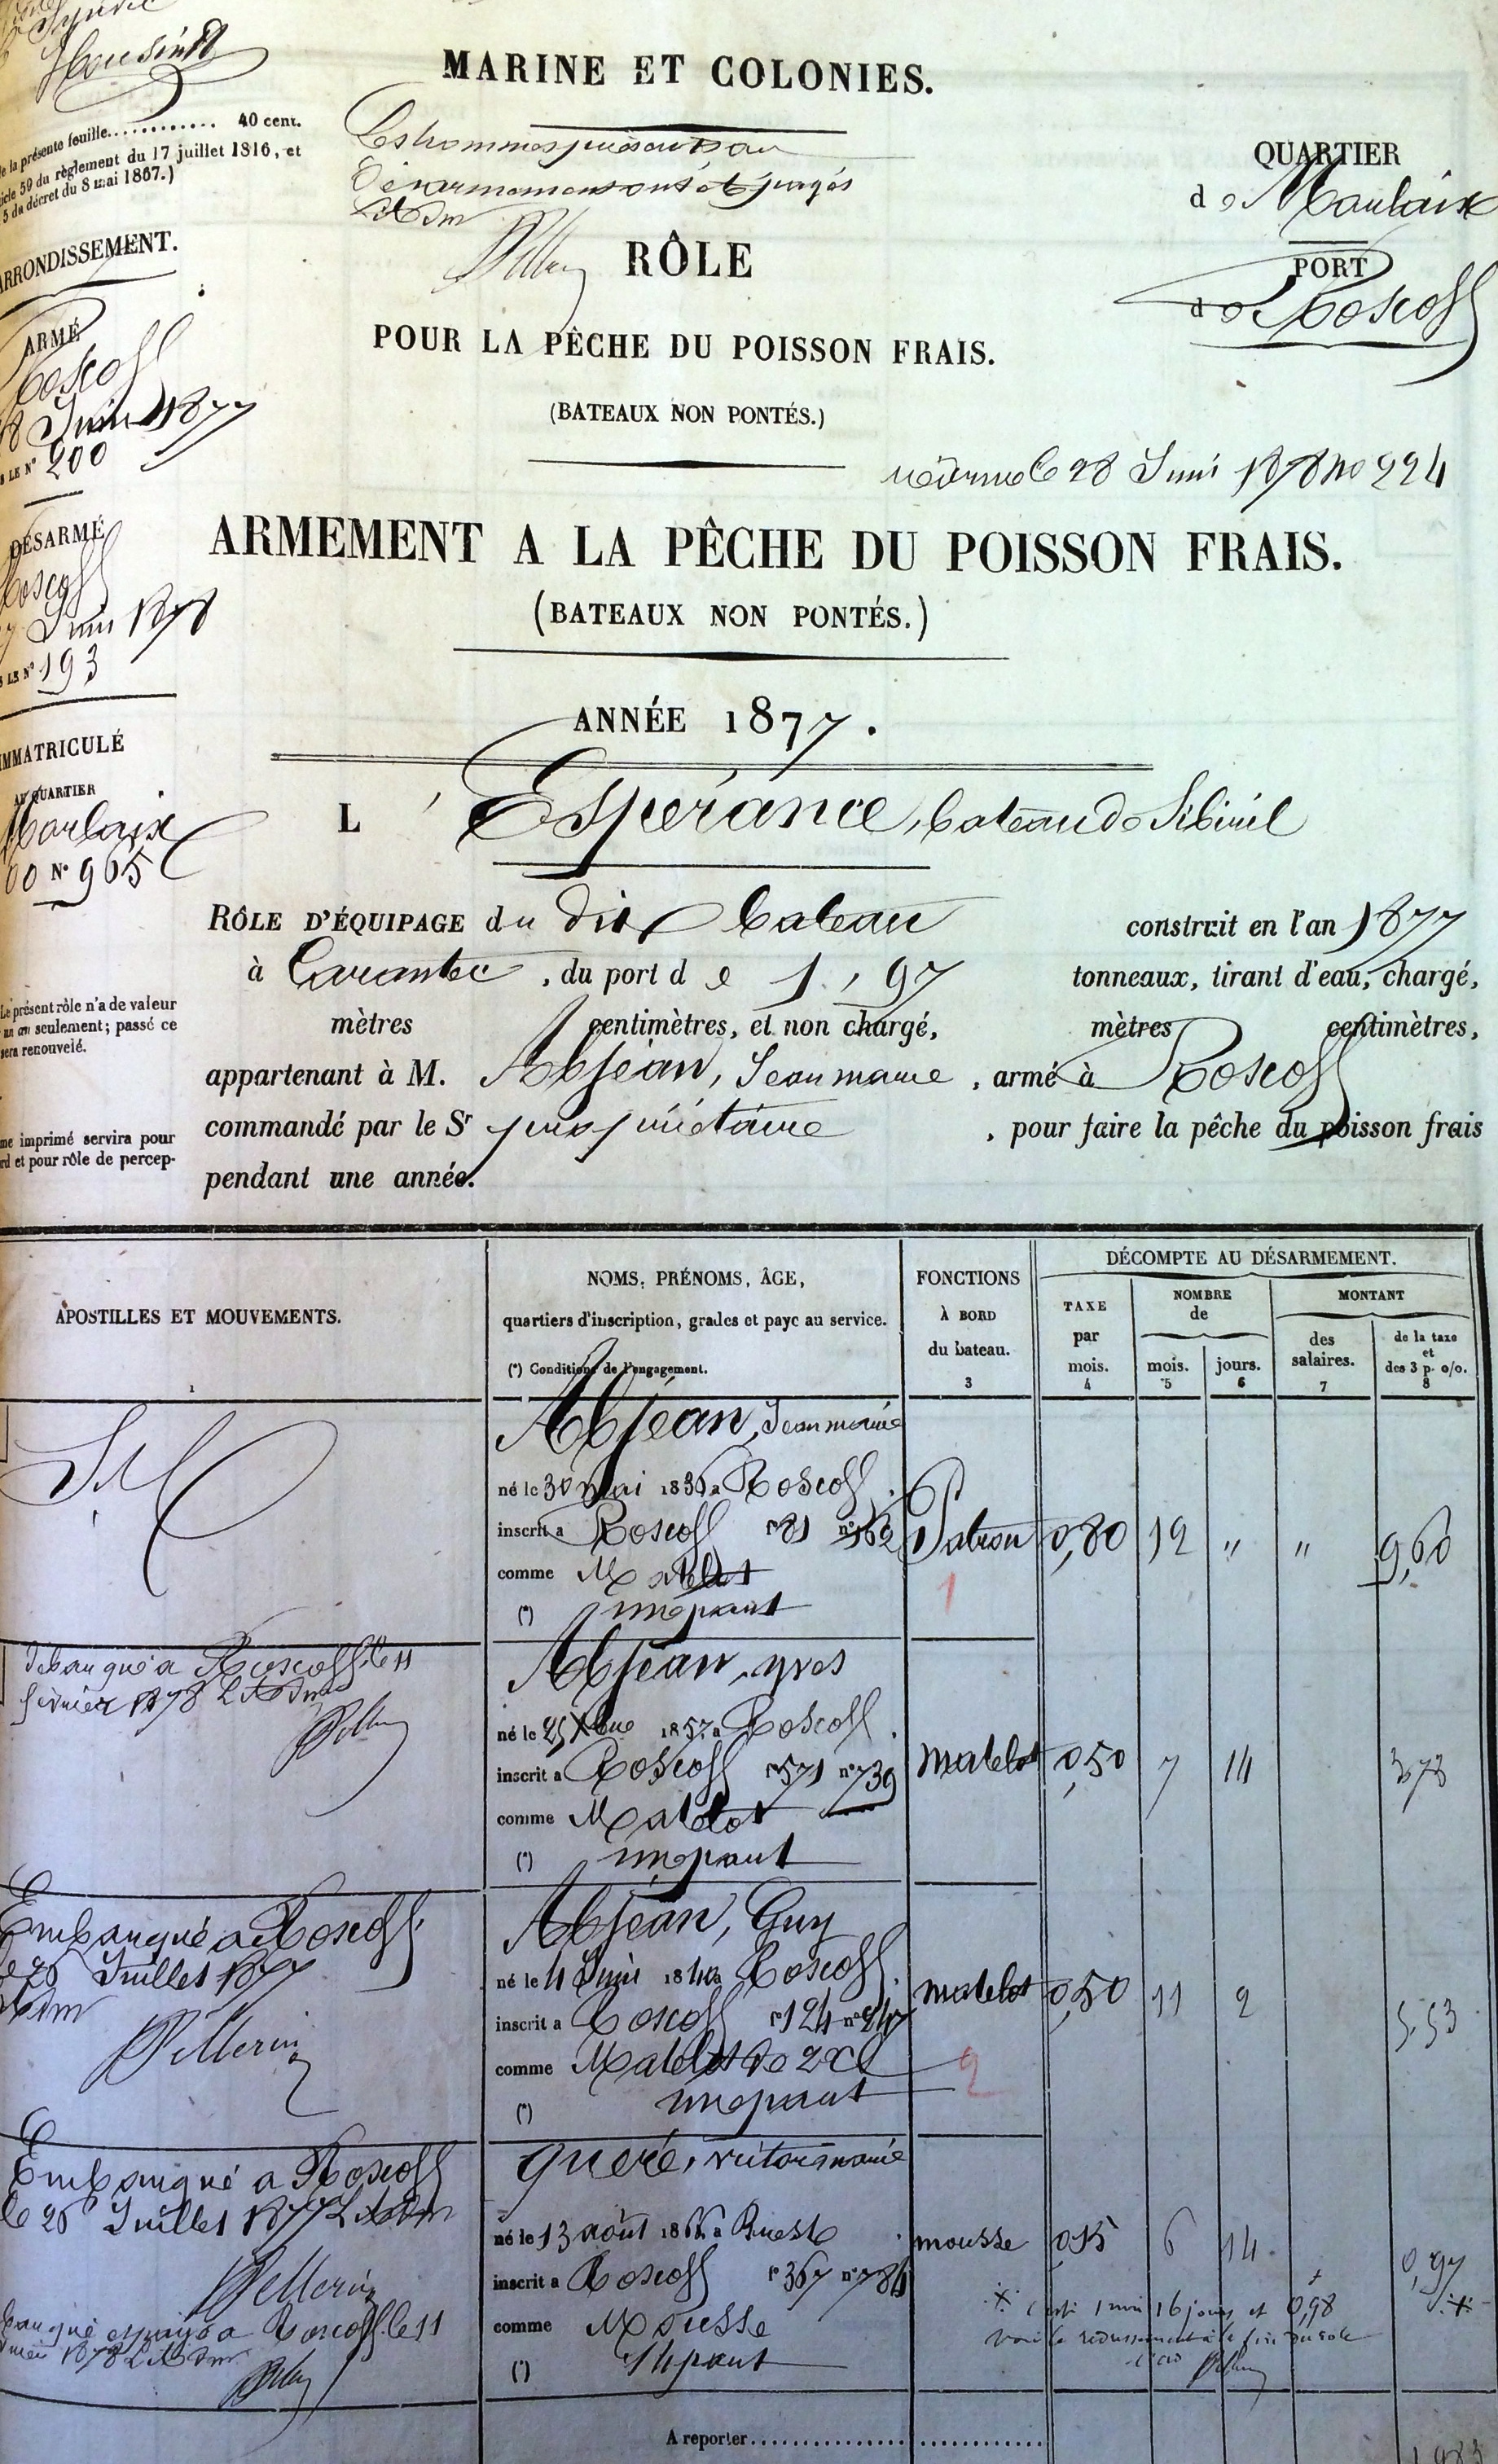 Syndic
MARINE ET COLONIES.
de la présente feuille............ 40 cent.
icle 50 du règlement du 17 juillet 1816, et
5 du décret du 8 mai 1867.)
Les hommes présents au
désarmement ont été purgés
QUARTIER
de Morlaix
RÔLE
PORT
de Roscoff
ARRONDISSEMENT.
POUR LA PÊCHE DU POISSON FRAIS.
(BATEAUX NON PONTÉS.)
ARMÉ
Roscoff
8 Juin 1877
S LE N° 200
réarmé le 28 Juin 1878 no 224
DÉSARMÉ
Roscoff
7 Juin 1878
S LE N° 193
ARMEMENT A LA PÊCHE DU POISSON FRAIS.
(BATEAUX NON PONTÉS.)
ANNÉE 1877.
IMMATRICULÉ
AU QUARTIER
Morlaix
N° 965
L'Espérance, bateau de Sibiril
RÔLE D'ÉQUIPAGE du dit bateau construit en l'an 1877
à Carantec, du port de 1,97 tonneaux, tirant d'eau, chargé,
mètres centimètres, et non chargé, mètres centimètres,
appartenant à M. Abjean, Jean marie, armé à Roscoff
commandé par le Sr propriétaire, pour faire la pêche du poisson frais
pendant une année.
Le présent rôle n'a de valeur
un an seulement; passé ce
sera renouvelé.
me imprimé servira pour
rd et pour rôle de percep-
APOSTILLES ET MOUVEMENTS.
1
NOMS, PRÉNOMS, ÂGE,
quartiers d'inscription, grades et paye au service.
(*) Conditions de l'engagement.
FONCTIONS
À BORD
du bateau.
3
DÉCOMPTE AU DÉSARMEMENT.
TAXE
par
mois.
4
NOMBRE
de
mois.
5
jours.
6
MONTANT
des
salaires.
7
de la taxe
et
des 3 p. o/o.
8
Abjean, Jean marie
né le 30 Mai 1836 a Roscoff
inscrit a Roscoff f° 81 n° 162
comme Matelot
(*) une part
Patron 0,80 12 " " 9,60
1
débarqué a Roscoff le 11
février 1878 L'Adm
Abjean, yves
né le 25 Xbre 1857 a Roscoff
inscrit a Roscoff f° 571 n° 739
comme Matelot
(*) une part
matelot 0,50 7 14 3,73
Embarqué a Roscoff
le 26 Juillet 1877
Pellerin
Abjean, Guy
né le 4 Juin 1840 a Roscoff
inscrit a Roscoff f° 124 n° 247
comme Matelot de 2e Cl
(*) une part
matelot 0,50 11 2 5,53
2
Embarqué a Roscoff
le 26 Juillet 1877 L'Adm
Pellerin
Roscoff le 11
1878 L'Adm
Queré, victor marie
né le 13 août 186 a Brest
inscrit a Roscoff f° 367 n° 784
comme Mousse
(*) 1/4 part
mousse 0,15 6 14 0,97
1 mois 16 jours et 0,98
voir le redressement a la fin du rôle
A reporter